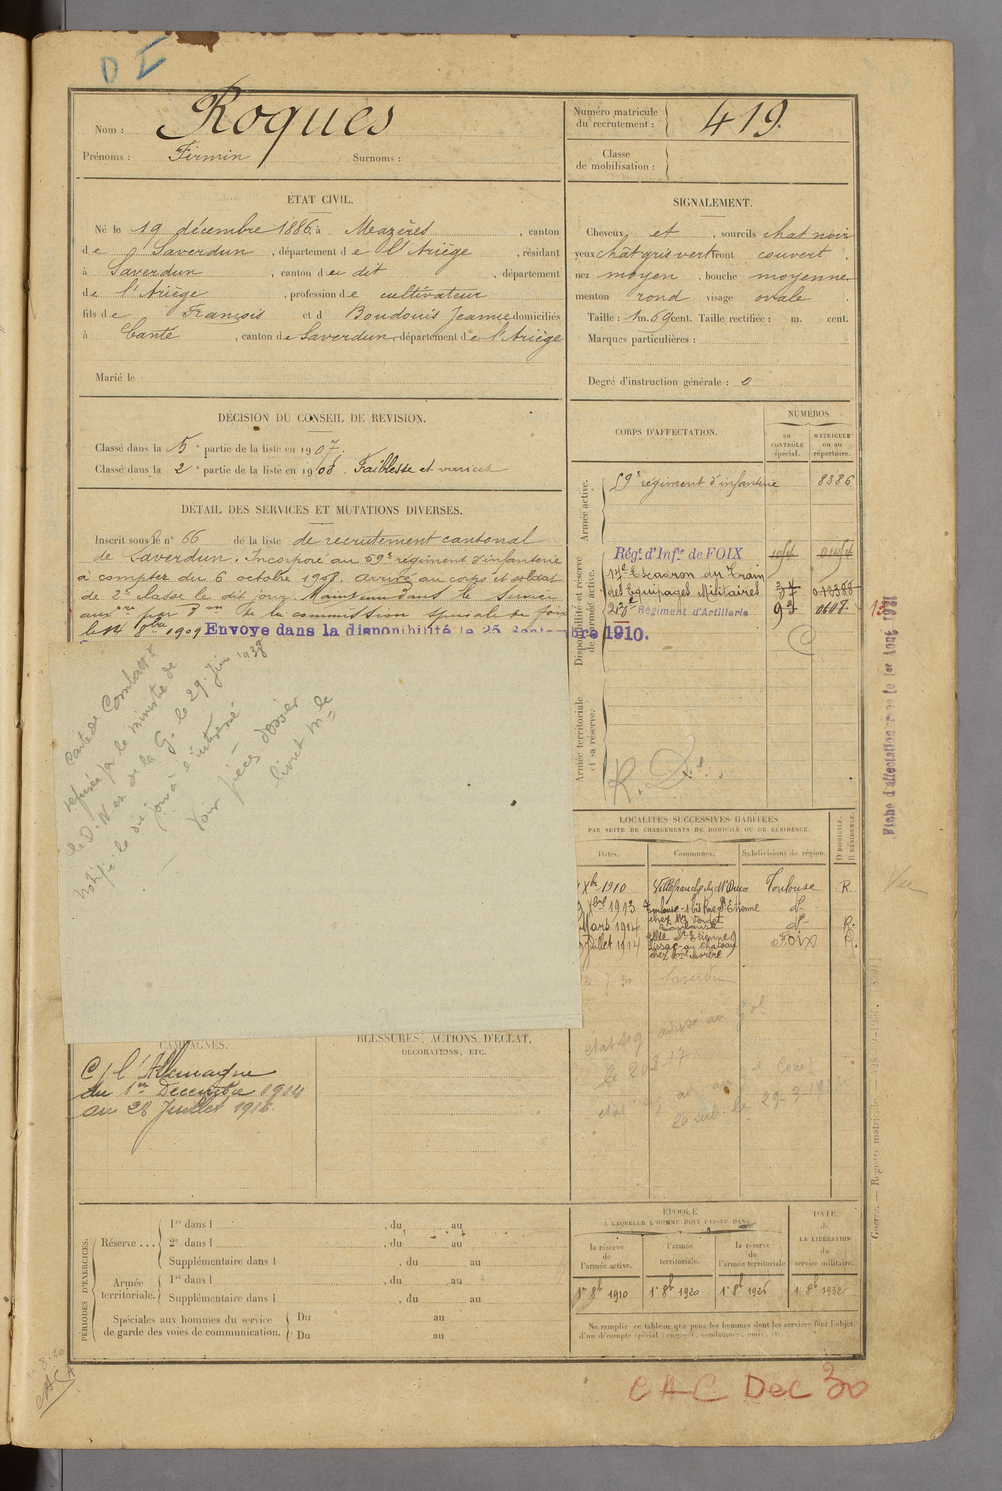 D I
Nom : Roques
Prénoms : Firmin Surnoms :
Numéro matricule du recrutement : 419.
Classe de mobilisation :
ÉTAT CIVIL.
Né le 19 décembre 1886, à Mazères, canton
de Saverdun, département de l'Ariège, résidant
à Saverdun, canton du dit, département
de l'Ariège, profession de cultivateur
fils de François et d Boudouis Jeanne domiciliés
à Canté, canton de Saverdun, département de l'Ariège
Marié le
SIGNALEMENT.
Cheveux et , sourcils chat noir
yeux chât gris vert front couvert ,
nez moyen , bouche moyenne
menton rond visage ovale .
Taille : 1 m. 69 cent. Taille rectifiée : m. cent.
Marques particulières :
Degré d'instruction générale : 0
DÉCISION DU CONSEIL DE REVISION.
Classé dans la 5e partie de la liste en 1907.
Classé dans la 2e partie de la liste en 1908. Faiblesse et varices
DÉTAIL DES SERVICES ET MUTATIONS DIVERSES.
Inscrit sous le n° 66 de la liste de recrutement cantonal
de Saverdun. Incorporé au 59e régiment d'infanterie
à compter du 6 octobre 1908. arrivé au corps et soldat
de 2e classe le dit jour. Maintenu dans le service
aux re par on de la commission spéciale de foix
le 14 8bre 1909 Envoyé dans la disponibilité le 25 septembre 1910.
CORPS D'AFFECTATION.
NUMÉROS
au CONTRÔLE spécial.
MATRICULE ou au répertoire.
Armée active.
59e régiment d'infanterie 8386
Disponibilité et réserve de l'armée active.
Régt d'Infie de FOIX
17e Escadron du Train
des Équipages Militaires 37
23e Régiment d'Artillerie 93
C
Armée territoriale et sa réserve.
Carte de Combattt
refusée par le ministre de
la D. N. et de la G. le 29 Juin 1938
notifié le dit jour à l'intéressé
Voir pièces dossier
livret mle
LOCALITÉS SUCCESSIVES HABITÉES
PAR SUITE DE CHANGEMENTS DE DOMICILE OU DE RÉSIDENCE.
Dates. Communes. Subdivisions de région. D DOMICILE. R RÉSIDENCE.
Xbre 1910 Villefranche Toulouse R
9bre 1913 Toulouse - 1 bis Rue St Etienne do
Mars 1914 Toulouse do R.
Juillet 1914 Lissac - au château Foix R.
Saverdun
CAMPAGNES.
C/ l'Allemagne
du 1er Décembre 1914
au 28 Juillet 1916.
BLESSURES, ACTIONS D'ÉCLAT,
DÉCORATIONS, ETC.
PÉRIODES D'EXERCICES.
Réserve ...
1re dans l , du au
2e dans l , du au
Supplémentaire dans l , du au
Armée territoriale.
1re dans l , du au
Supplémentaire dans l , du au
Spéciales aux hommes du service de garde des voies de communication.
Du au
Du au
ÉPOQUE
À LAQUELLE L'HOMME DOIT PASSER DANS
la réserve de l'armée active.
l'armée territoriale.
la réserve de l'armée territoriale.
DATE de LA LIBÉRATION du service militaire.
1er 8b 1910 1er 8b 1920 1er 8b 1926 1er 8b 1932
Ne remplir ce tableau que pour les hommes dont les services font l'objet
d'un décompte spécial (engagés, condamnés, omis, etc.)
Vu
Fiche d'affectation
CAC Dec 30